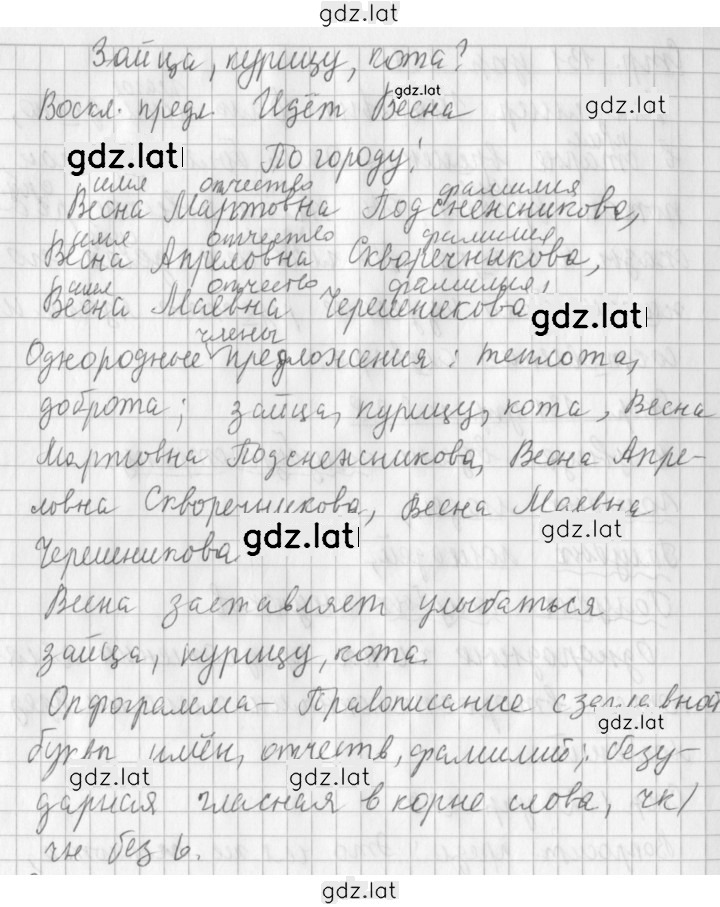 gdz.lat
Зайца, курицу, кота?
gdz.lat
Воскл. предл. Идёт Весна gdz.lat
gdz.lat По городу!
имя отчество фамилия
Весна Мартовна Подснежникова,
имя отчество фамилия
Весна Апреловна Скворечникова,
имя отчество фамилия,
Весна Маевна Черешникова
gdz.lat
члены
Однородные предложения: теплота,
доброта; зайца, курицу, кота, Весна
Мартовна Подснежникова, Весна Апре-
ловна Скворечникова, Весна Маевна
gdz.lat
Черешникова gdz.lat
Весна заставляет улыбаться
зайца, курицу, кота.
Орфограмма - Правописание с заглавной
gdz.lat
букв имён, отчеств, фамилий; безу-
gdz.lat gdz.lat
дарная гласная в корне слова, чк/
чн без ь.
gdz.lat